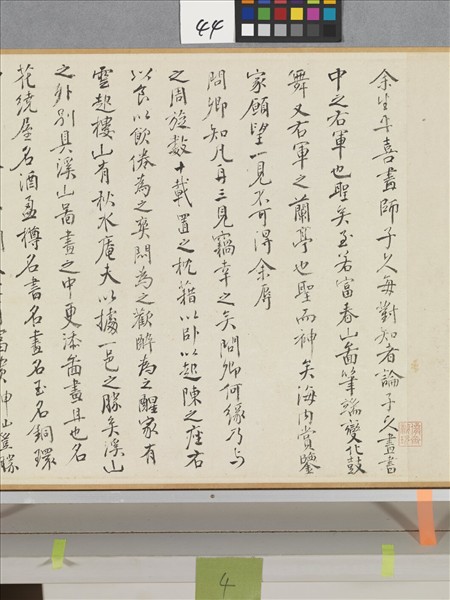 44
余生平喜畫師子久每對知者論子久畫書
中之右軍也聖矣至若富春山圖筆端變化鼓
舞又右軍之蘭亭也聖而神矣海內賞鑒
家願望一見不可得余辱
問卿知凡再三見竊幸之矣問卿何緣乃與
之周旋數十載置之枕藉以卧以起陳之座右
以食以飲倦為之爽悶為之歡醉為之醒家有
雲起樓山有秋水庵夫以據一邑之勝矣溪山
之外別具溪山圖畫之中更添圖畫且也名
花繞屋名酒盈樽名書名畫名玉名銅環
4